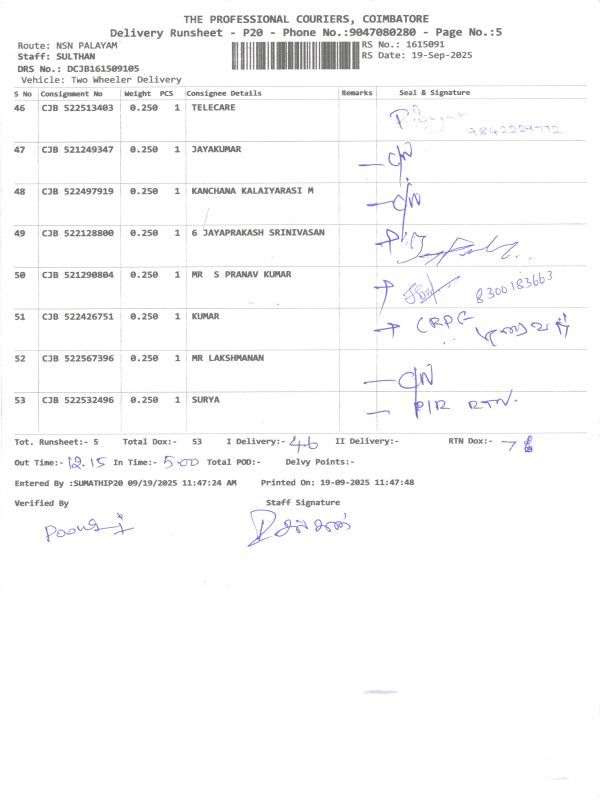 THE PROFESSIONAL COURIERS, COIMBATORE
Delivery Runsheet - P20 - Phone No.:9047080280 - Page No.:5
Route: NSN PALAYAM RS No.: 1615091
Staff: SULTHAN RS Date: 19-Sep-2025
DRS No.: DCJB161509105
Vehicle: Two Wheeler Delivery
S No Consignment No Weight PCS Consignee Details Remarks Seal & Signature
46 CJB 522513403 0.250 1 TELECARE
9842229772
47 CJB 521249347 0.250 1 JAYAKUMAR
C/N
48 CJB 522497919 0.250 1 KANCHANA KALAIYARASI M
C/N
49 CJB 522128800 0.250 1 G JAYAPRAKASH SRINIVASAN
50 CJB 521290804 0.250 1 MR S PRANAV KUMAR
8300183663
51 CJB 522426751 0.250 1 KUMAR
CRPF
52 CJB 522567396 0.250 1 MR LAKSHMANAN
C/N
53 CJB 522532496 0.250 1 SURYA
P/R RTN.
Tot. Runsheet:- 5 Total Dox:- 53 I Delivery:- 46 II Delivery:- RTN Dox:- 7
Out Time:- 12.15 In Time:- 5.00 Total POD:- Delvy Points:-
Entered By :SUMATHIP20 09/19/2025 11:47:24 AM Printed On: 19-09-2025 11:47:48
Verified By Staff Signature